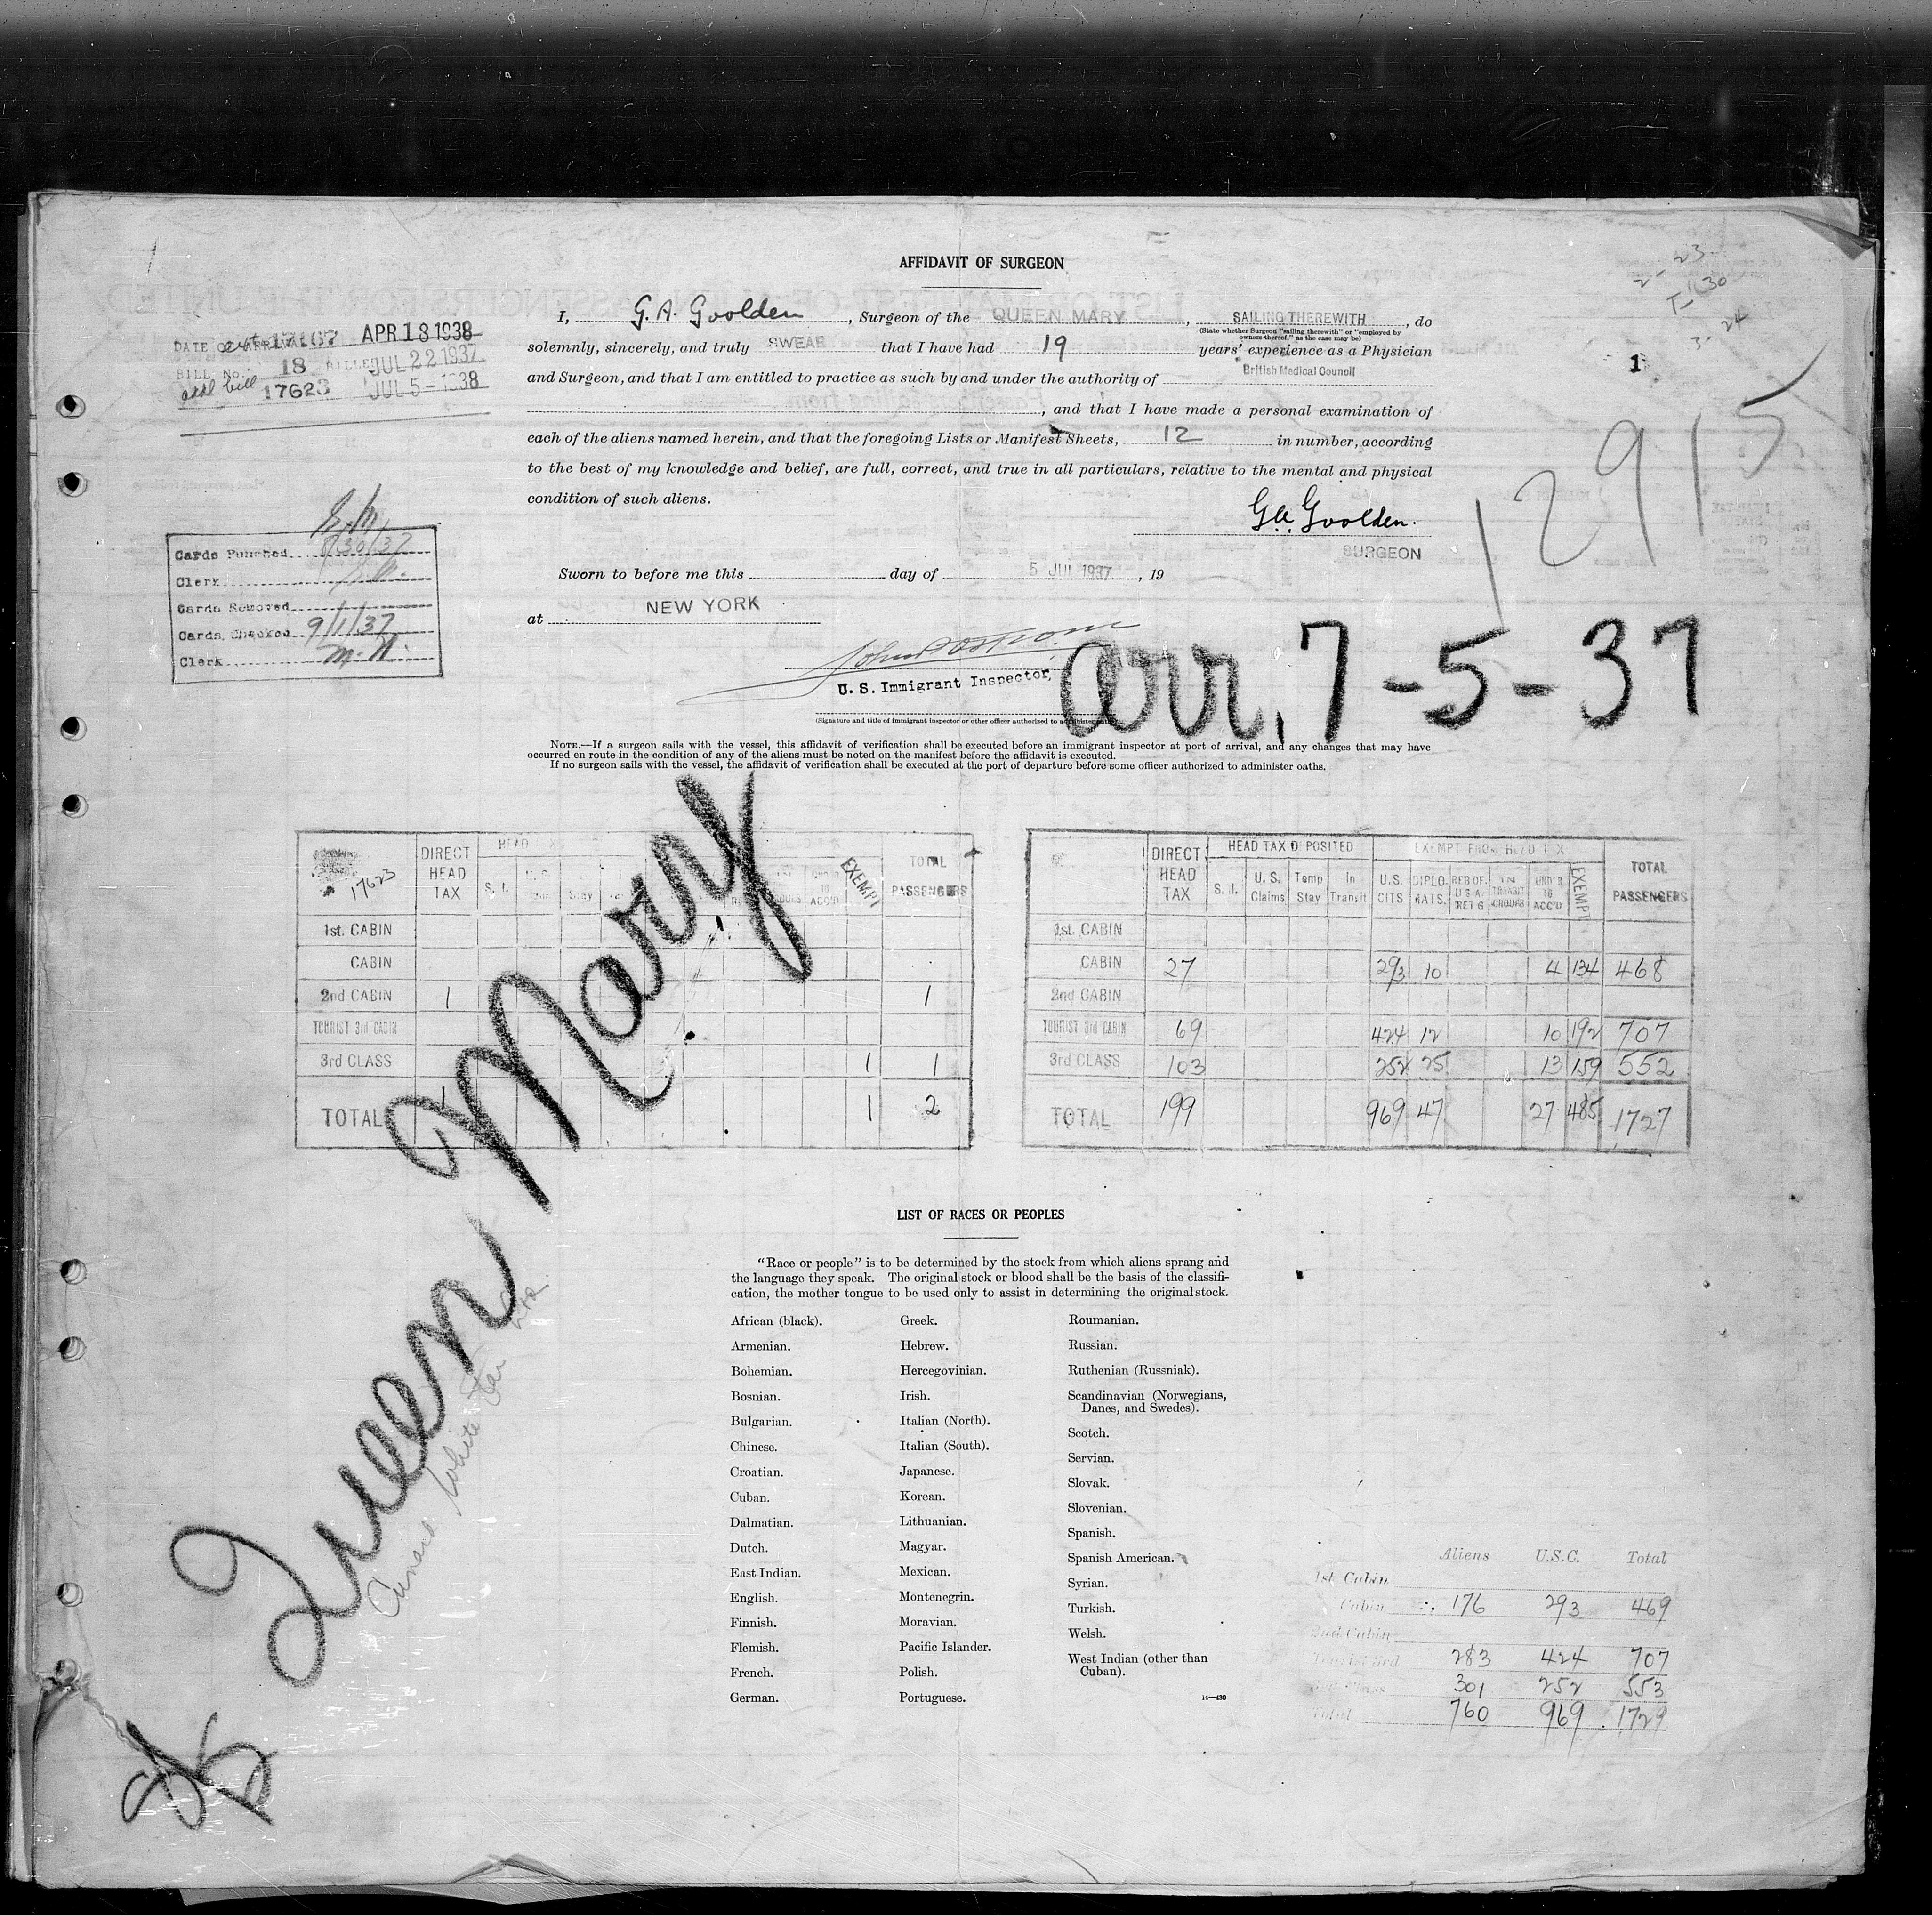 AFFIDAVIT OF SURGEON
I, G. A. Goolden, Surgeon of the QUEEN MARY, SAILING THEREWITH, do
(State whether Surgeon "sailing therewith" or "employed by owners thereof," as the case may be)
solemnly, sincerely, and truly SWEAR that I have had 19 years' experience as a Physician
and Surgeon, and that I am entitled to practice as such by and under the authority of British Medical Council
, and that I have made a personal examination of
each of the aliens named herein, and that the foregoing Lists or Manifest Sheets, 12 in number, according
to the best of my knowledge and belief, are full, correct, and true in all particulars, relative to the mental and physical
condition of such aliens.
G. A. Goolden.
SURGEON
Sworn to before me this day of 5 JUL 1937, 19
at NEW YORK
U. S. Immigrant Inspector
(Signature and title of immigrant inspector or other officer authorized to administer oaths)
NOTE.—If a surgeon sails with the vessel, this affidavit of verification shall be executed before an immigrant inspector at port of arrival, and any changes that may have
occurred en route in the condition of any of the aliens must be noted on the manifest before the affidavit is executed.
If no surgeon sails with the vessel, the affidavit of verification shall be executed at the port of departure before some officer authorized to administer oaths.
1
2- 23-
1-30
3- 24
12915
arr. 7-5-37
17167 APR 18 1938
DATE OF ARRIVAL
BILL No. 18 BILLED JUL 22 1937
addl bill 17623 JUL 5-1938
Cards Punched 8/30/37
Clerk
Cards Removed
Cards Checked 9/1/37
Clerk M. N.
17623
DIRECT HEAD TAX
HEAD
S. I.
Stay
EXEMPT
TOTAL PASSENGERS
1st. CABIN
CABIN
2nd CABIN 1 1
TOURIST 3rd CABIN
3rd CLASS 1 1
TOTAL 1 1 2
DIRECT HEAD TAX
HEAD TAX DEPOSITED
EXEMPT FROM HEAD TAX
TOTAL PASSENGERS
S. I. U. S. Claims Temp Stay In Transit U.S. CITS DIPLOMATS. RES OF. U S A RET G IN TRANSIT GROUPS UNDER 16 ACC'D EXEMPT
1st. CABIN
CABIN 27 293 10 4 134 468
2nd CABIN
TOURIST 3rd CABIN 69 424 12 10 192 707
3rd CLASS 103 252 25 13 159 552
TOTAL 199 969 47 27 485 1727
Queen Mary
Cunard White Star
LIST OF RACES OR PEOPLES
"Race or people" is to be determined by the stock from which aliens sprang and
the language they speak. The original stock or blood shall be the basis of the classifi-
cation, the mother tongue to be used only to assist in determining the original stock.
African (black).
Armenian.
Bohemian.
Bosnian.
Bulgarian.
Chinese.
Croatian.
Cuban.
Dalmatian.
Dutch.
East Indian.
English.
Finnish.
Flemish.
French.
German.
Greek.
Hebrew.
Hercegovinian.
Irish.
Italian (North).
Italian (South).
Japanese.
Korean.
Lithuanian.
Magyar.
Mexican.
Montenegrin.
Moravian.
Pacific Islander.
Polish.
Portuguese.
Roumanian.
Russian.
Ruthenian (Russniak).
Scandinavian (Norwegians,
Danes, and Swedes).
Scotch.
Servian.
Slovak.
Slovenian.
Spanish.
Spanish American.
Syrian.
Turkish.
Welsh.
West Indian (other than
Cuban).
Aliens U.S.C. Total
1st Cabin
Cabin 176 293 469
2nd Cabin
Tourist 3rd 283 424 707
3rd Class 301 252 553
Total 760 969 1729